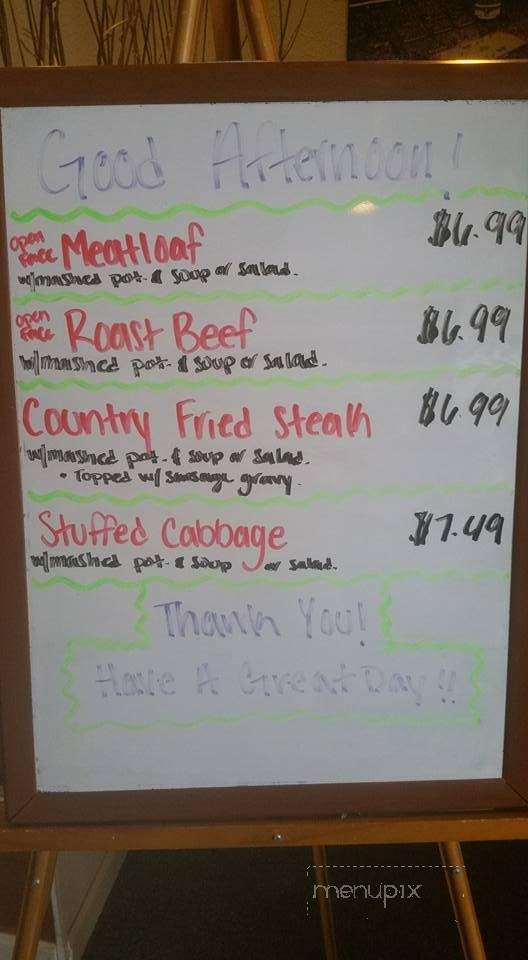 Good Afternoon!
open face Meatloaf $6.99
w/mashed pot. & soup or salad.
open face Roast Beef $6.99
w/mashed pot. & soup or salad.
Country Fried Steak $6.99
w/mashed pot. & soup or salad.
• Topped w/ sausage gravy.
Stuffed Cabbage $7.49
w/mashed pot. & soup or salad.
Thank You!
Have A Great Day!!
menupix